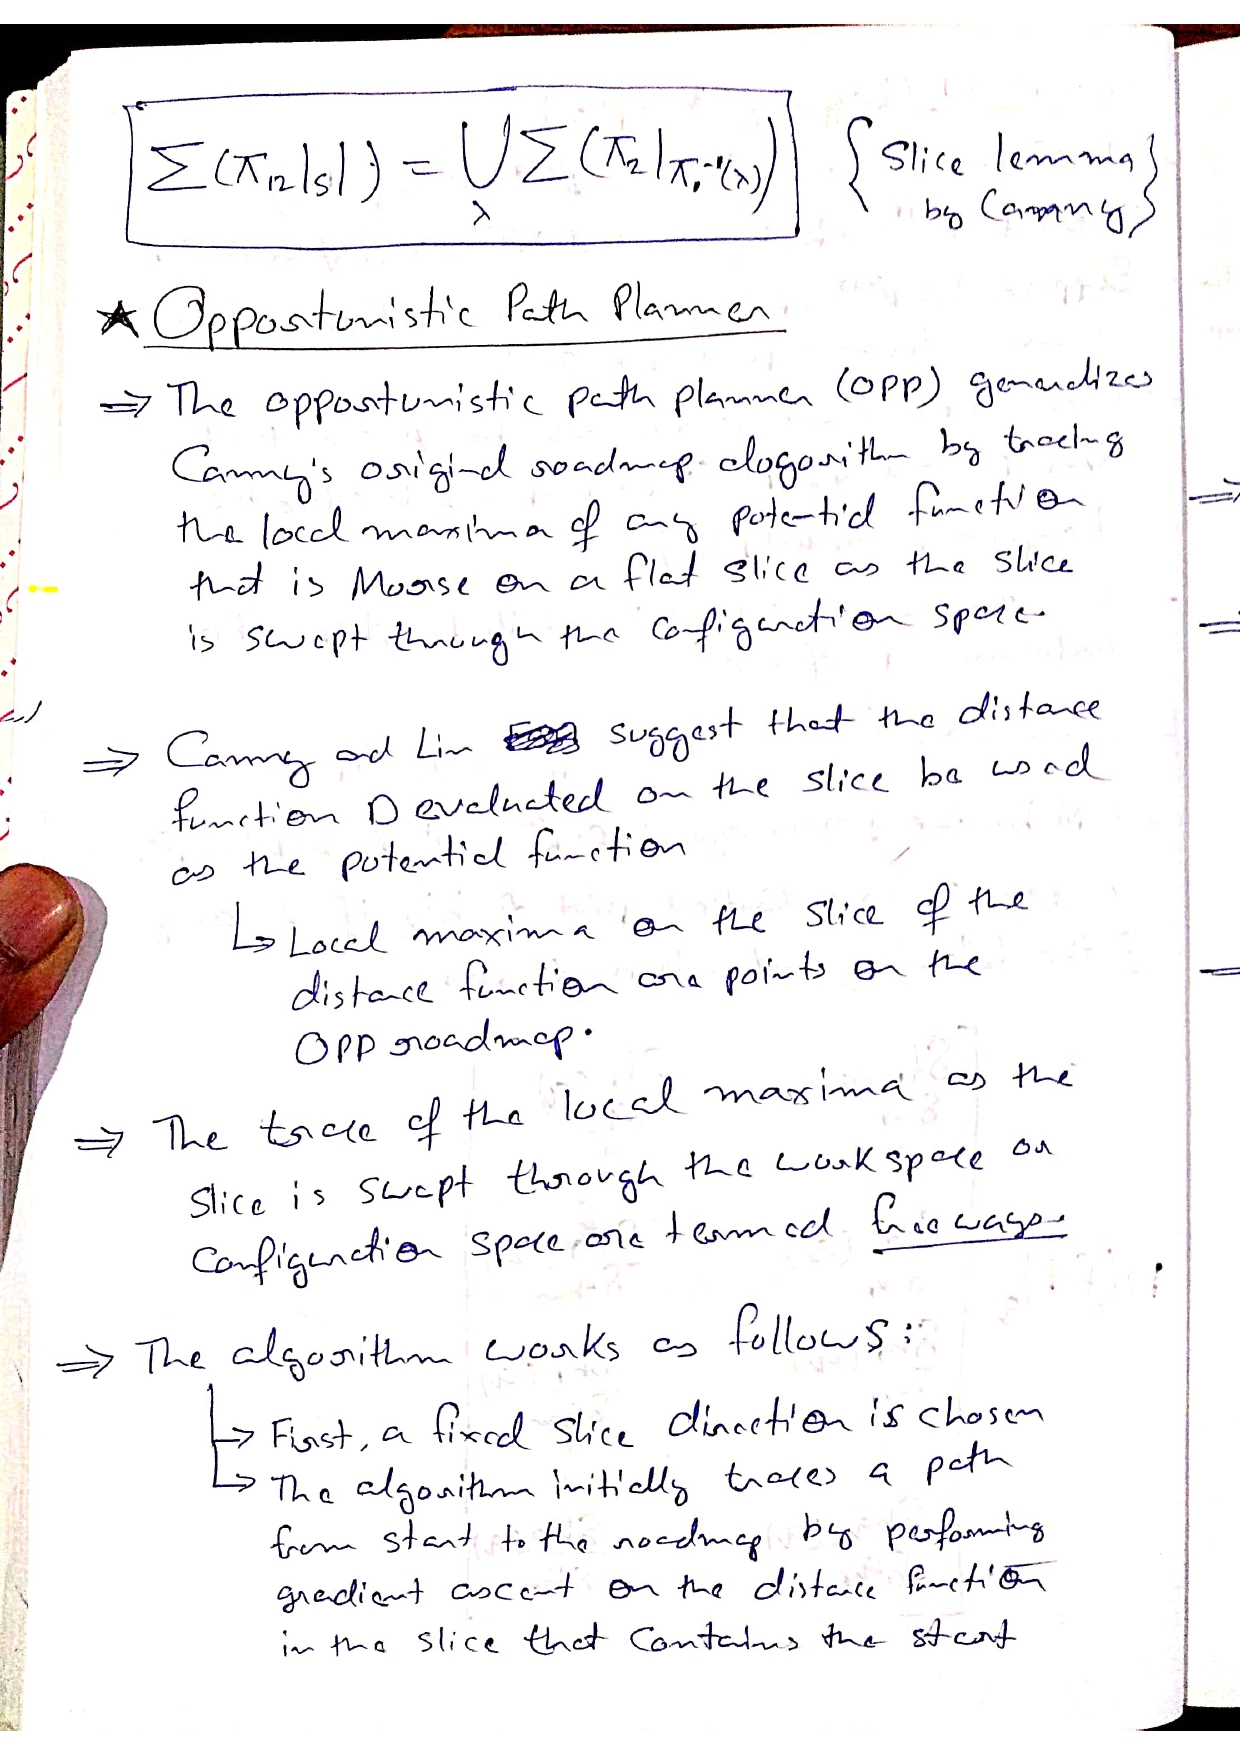 Σ(π₁₂|s|) = ⋃_λ Σ(π₂|π₁⁻¹(λ)) {Slice lemma
by Canny}
★ Opportunistic Path Planner
⇒ The opportunistic path planner (OPP) generalizes
Canny's original roadmap alogorithm by tracing
the local maxima of any potential function
that is Morse on a flat slice as the slice
is swept through the configuration space.
⇒ Canny and Lin suggest that the distance
function D evaluated on the slice be used
as the potential function
↳ Local maxima on the slice of the
distance function are points on the
OPP roadmap.
⇒ The trace of the local maxima as the
slice is swept through the workspace or
configuration space are termed freeways.
⇒ The algorithm works as follows:
↳ First, a fixed slice direction is chosen
↳ The algorithm initially traces a path
from start to the roadmap by performing
gradient ascent on the distance function
in the slice that contains the start